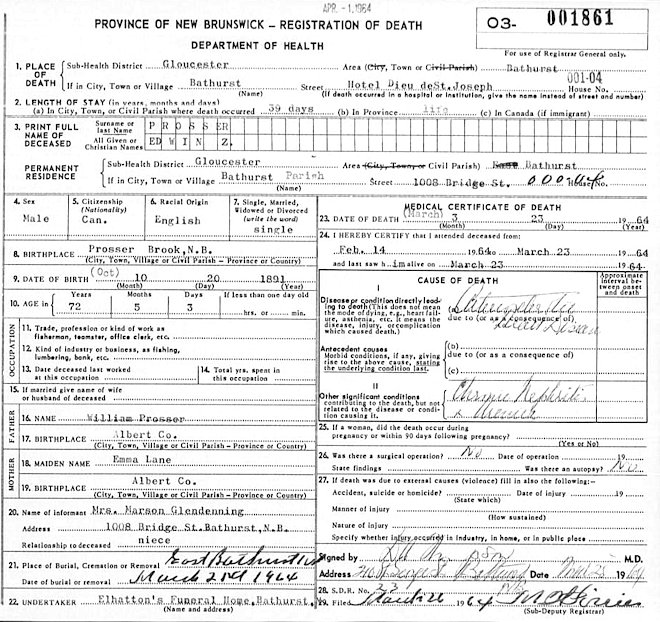 APR -1.1964
PROVINCE OF NEW BRUNSWICK – REGISTRATION OF DEATH
DEPARTMENT OF HEALTH
O3- 001861
For use of Registrar General only.
1. PLACE OF DEATH
Sub-Health District Gloucester Area (City, Town or Civil Parish) Bathurst
001-04
If in City, Town or Village Bathurst Street Hotel Dieu deSt.Joseph House No.
(Name) (If death occurred in a hospital or institution, give the name instead of street and number)
2. LENGTH OF STAY (in years, months and days)
(a) In City, Town, or Civil Parish where death occurred 39 days (b) In Province life (c) In Canada (if immigrant)
3. PRINT FULL NAME OF DECEASED
Surname or last Name PROSSER
All Given or Christian Names EDWIN Z.
PERMANENT RESIDENCE
Sub-Health District Gloucester Area (City, Town, or Civil Parish) Bathurst
If in City, Town or Village Bathurst Parish Street 1008 Bridge St. House No.
(Name)
4. Sex
Male
5. Citizenship (Nationality)
Can.
6. Racial Origin
English
7. Single, Married, Widowed or Divorced (write the word)
single
8. BIRTHPLACE Prosser Brook,N.B.
(City, Town, Village or Civil Parish - Province or Country)
9. DATE OF BIRTH (Oct) 10 20 1891
(Month) (Day) (Year)
10. AGE in
Years Months Days If less than one day old
72 5 3 hrs. or min.
OCCUPATION
11. Trade, profession or kind of work as fisherman, teamster, office clerk, etc.
12. Kind of industry or business, as fishing, lumbering, bank, etc.
13. Date deceased last worked at this occupation
14. Total yrs. spent in this occupation
15. If married give name of wife or husband of deceased
FATHER
16. NAME William Prosser
17. BIRTHPLACE Albert Co.
(City, Town, Village or Civil Parish - Province or Country)
MOTHER
18. MAIDEN NAME Emma Lane
19. BIRTHPLACE Albert Co.
(City, Town, Village or Civil Parish - Province or Country)
20. Name of informant Mrs. Marson Glendenning
Address 1008 Bridge St.Bathurst,N.B.
Relationship to deceased niece
21. Place of Burial, Cremation or Removal East Bathurst
Date of burial or removal March 1964
22. UNDERTAKER Elhatton's Funeral Home,Bathurst,
MEDICAL CERTIFICATE OF DEATH
23. DATE OF DEATH (March) 3 23 1964
(Month) (Day) (Year)
24. I HEREBY CERTIFY that I attended deceased from:
Feb. 14 1964 to March 23 1964
and last saw h.im alive on March 23 1964
CAUSE OF DEATH
Approximate interval between onset and death
I
Disease or condition directly leading to death (This does not mean the mode of dying, e.g., heart failure, asthenia, etc. It means the disease, injury, or complication which caused death.)
(a)
due to (or as a consequence of)
Antecedent causes
Morbid conditions, if any, giving rise to the above cause, stating the underlying condition last.
(b)
due to (or as a consequence of)
(c)
II
Other significant conditions
contributing to the death, but not related to the disease or condition causing it.
Chronic Nephritis
& Uremia
25. If a woman, did the death occur during pregnancy or within 90 days following pregnancy?
(Yes or No)
26. Was there a surgical operation? No Date of operation 19
State findings Was there an autopsy? No
27. If death was due to external causes (violence) fill in also the following:-
Accident, suicide or homicide? Date of injury 19
(State which)
Manner of injury
(How sustained)
Nature of injury
Specify whether injury occurred in industry, in home, or in public place
Signed by M.D.
Address Date 1964
28. S.D.R. No.
29. Filed March 26 1964
(Sub-Deputy Registrar)